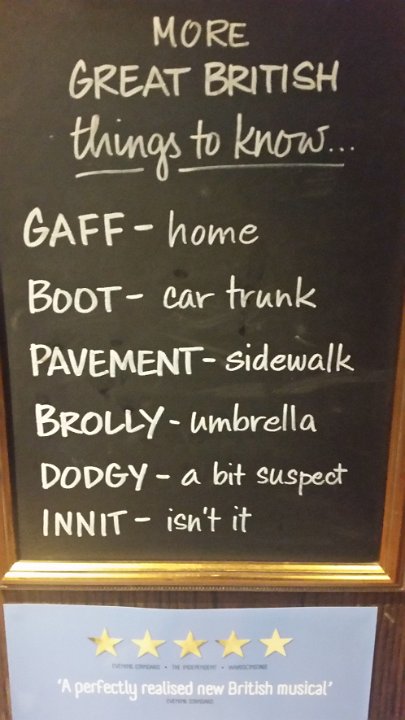 MORE
GREAT BRITISH
things to know...
GAFF - home
BOOT - car trunk
PAVEMENT - sidewalk
BROLLY - umbrella
DODGY - a bit suspect
INNIT - isn't it
EVENING STANDARD • THE INDEPENDENT •
'A perfectly realised new British musical'
EVENING STANDARD